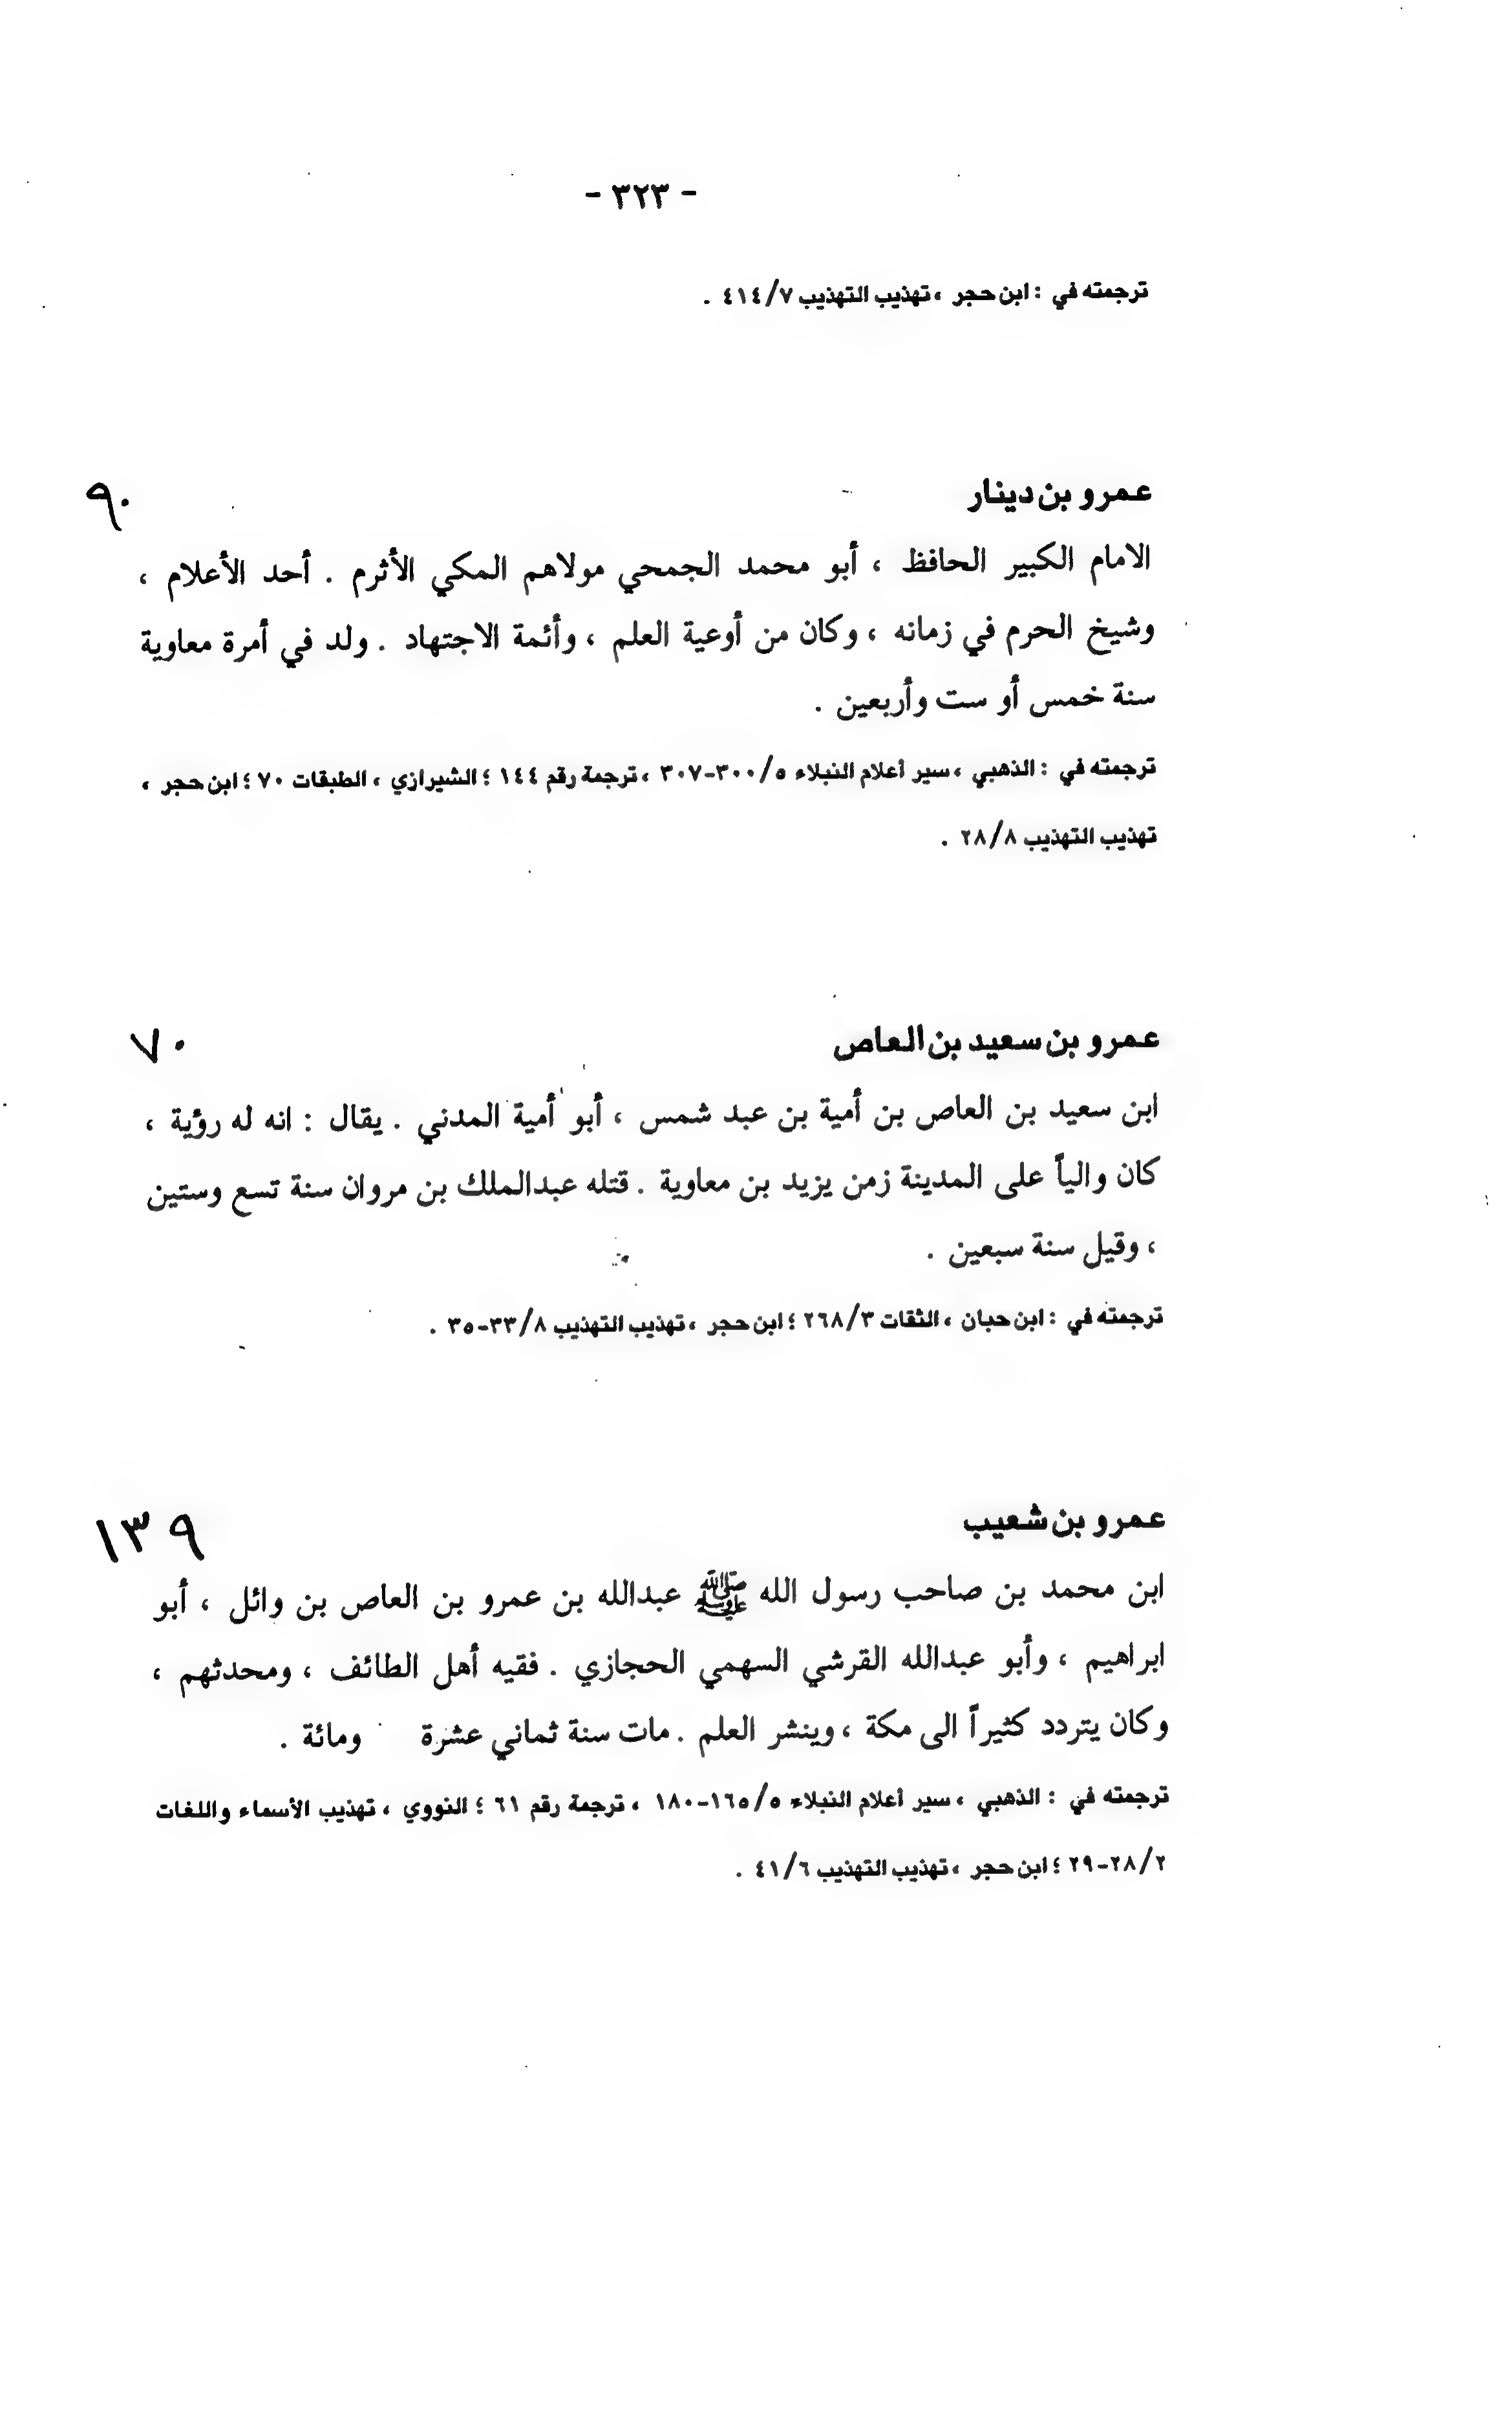 - ٣٢٣ -
ترجمته في : ابن حجر ، تهذيب التهذيب ٤١٤/٧ .
عمرو بن دينار ٩٠
الامام الكبير الحافظ ، أبو محمد الجمحي مولاهم المكي الأثرم . أحد الأعلام ،
وشيخ الحرم في زمانه ، وكان من أوعية العلم ، وأئمة الاجتهاد . ولد في أمرة معاوية
سنة خمس أو ست وأربعين .
ترجمته في : الذهبي ، سير أعلام النبلاء ٣٠٠/٥-٣٠٧ ، ترجمة رقم ١٤٤ ؛ الشيرازي ، الطبقات ٧٠ ؛ ابن حجر ،
تهذيب التهذيب ٢٨/٨ .
عمرو بن سعيد بن العاص ٧٠
ابن سعيد بن العاص بن أمية بن عبد شمس ، أبو أمية المدني . يقال : انه له رؤية ،
كان والياً على المدينة زمن يزيد بن معاوية . قتله عبدالملك بن مروان سنة تسع وستين
، وقيل سنة سبعين .
ترجمته في : ابن حبان ، الثقات ٢٦٨/٣ ؛ ابن حجر ، تهذيب التهذيب ٣٣/٨-٣٥ .
عمرو بن شعيب ١٣٩
ابن محمد بن صاحب رسول الله ﷺ عبدالله بن عمرو بن العاص بن وائل ، أبو
ابراهيم ، وأبو عبدالله القرشي السهمي الحجازي . فقيه أهل الطائف ، ومحدثهم ،
وكان يتردد كثيراً الى مكة ، وينشر العلم . مات سنة ثماني عشرة ومائة .
ترجمته في : الذهبي ، سير أعلام النبلاء ١٦٥/٥-١٨٠ ، ترجمة رقم ٦١ ؛ النووي ، تهذيب الأسماء واللغات
٢٨/٢-٢٩ ؛ ابن حجر ، تهذيب التهذيب ٤١/٦ .